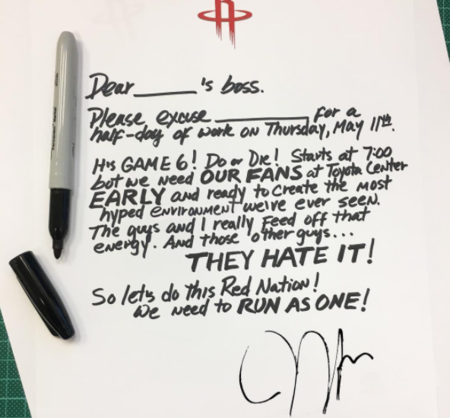 Dear ______'s boss.
Please excuse ____________ for a
half-day of work on Thursday, May 11th.
It's GAME 6! Do or Die! Starts at 7:00
but we need OUR FANS at Toyota Center
EARLY and ready to create the most
hyped environment we've ever seen.
The guys and I really feed off that
energy. And those other guys...
THEY HATE IT!
So let's do this Red Nation!
We need to RUN AS ONE!